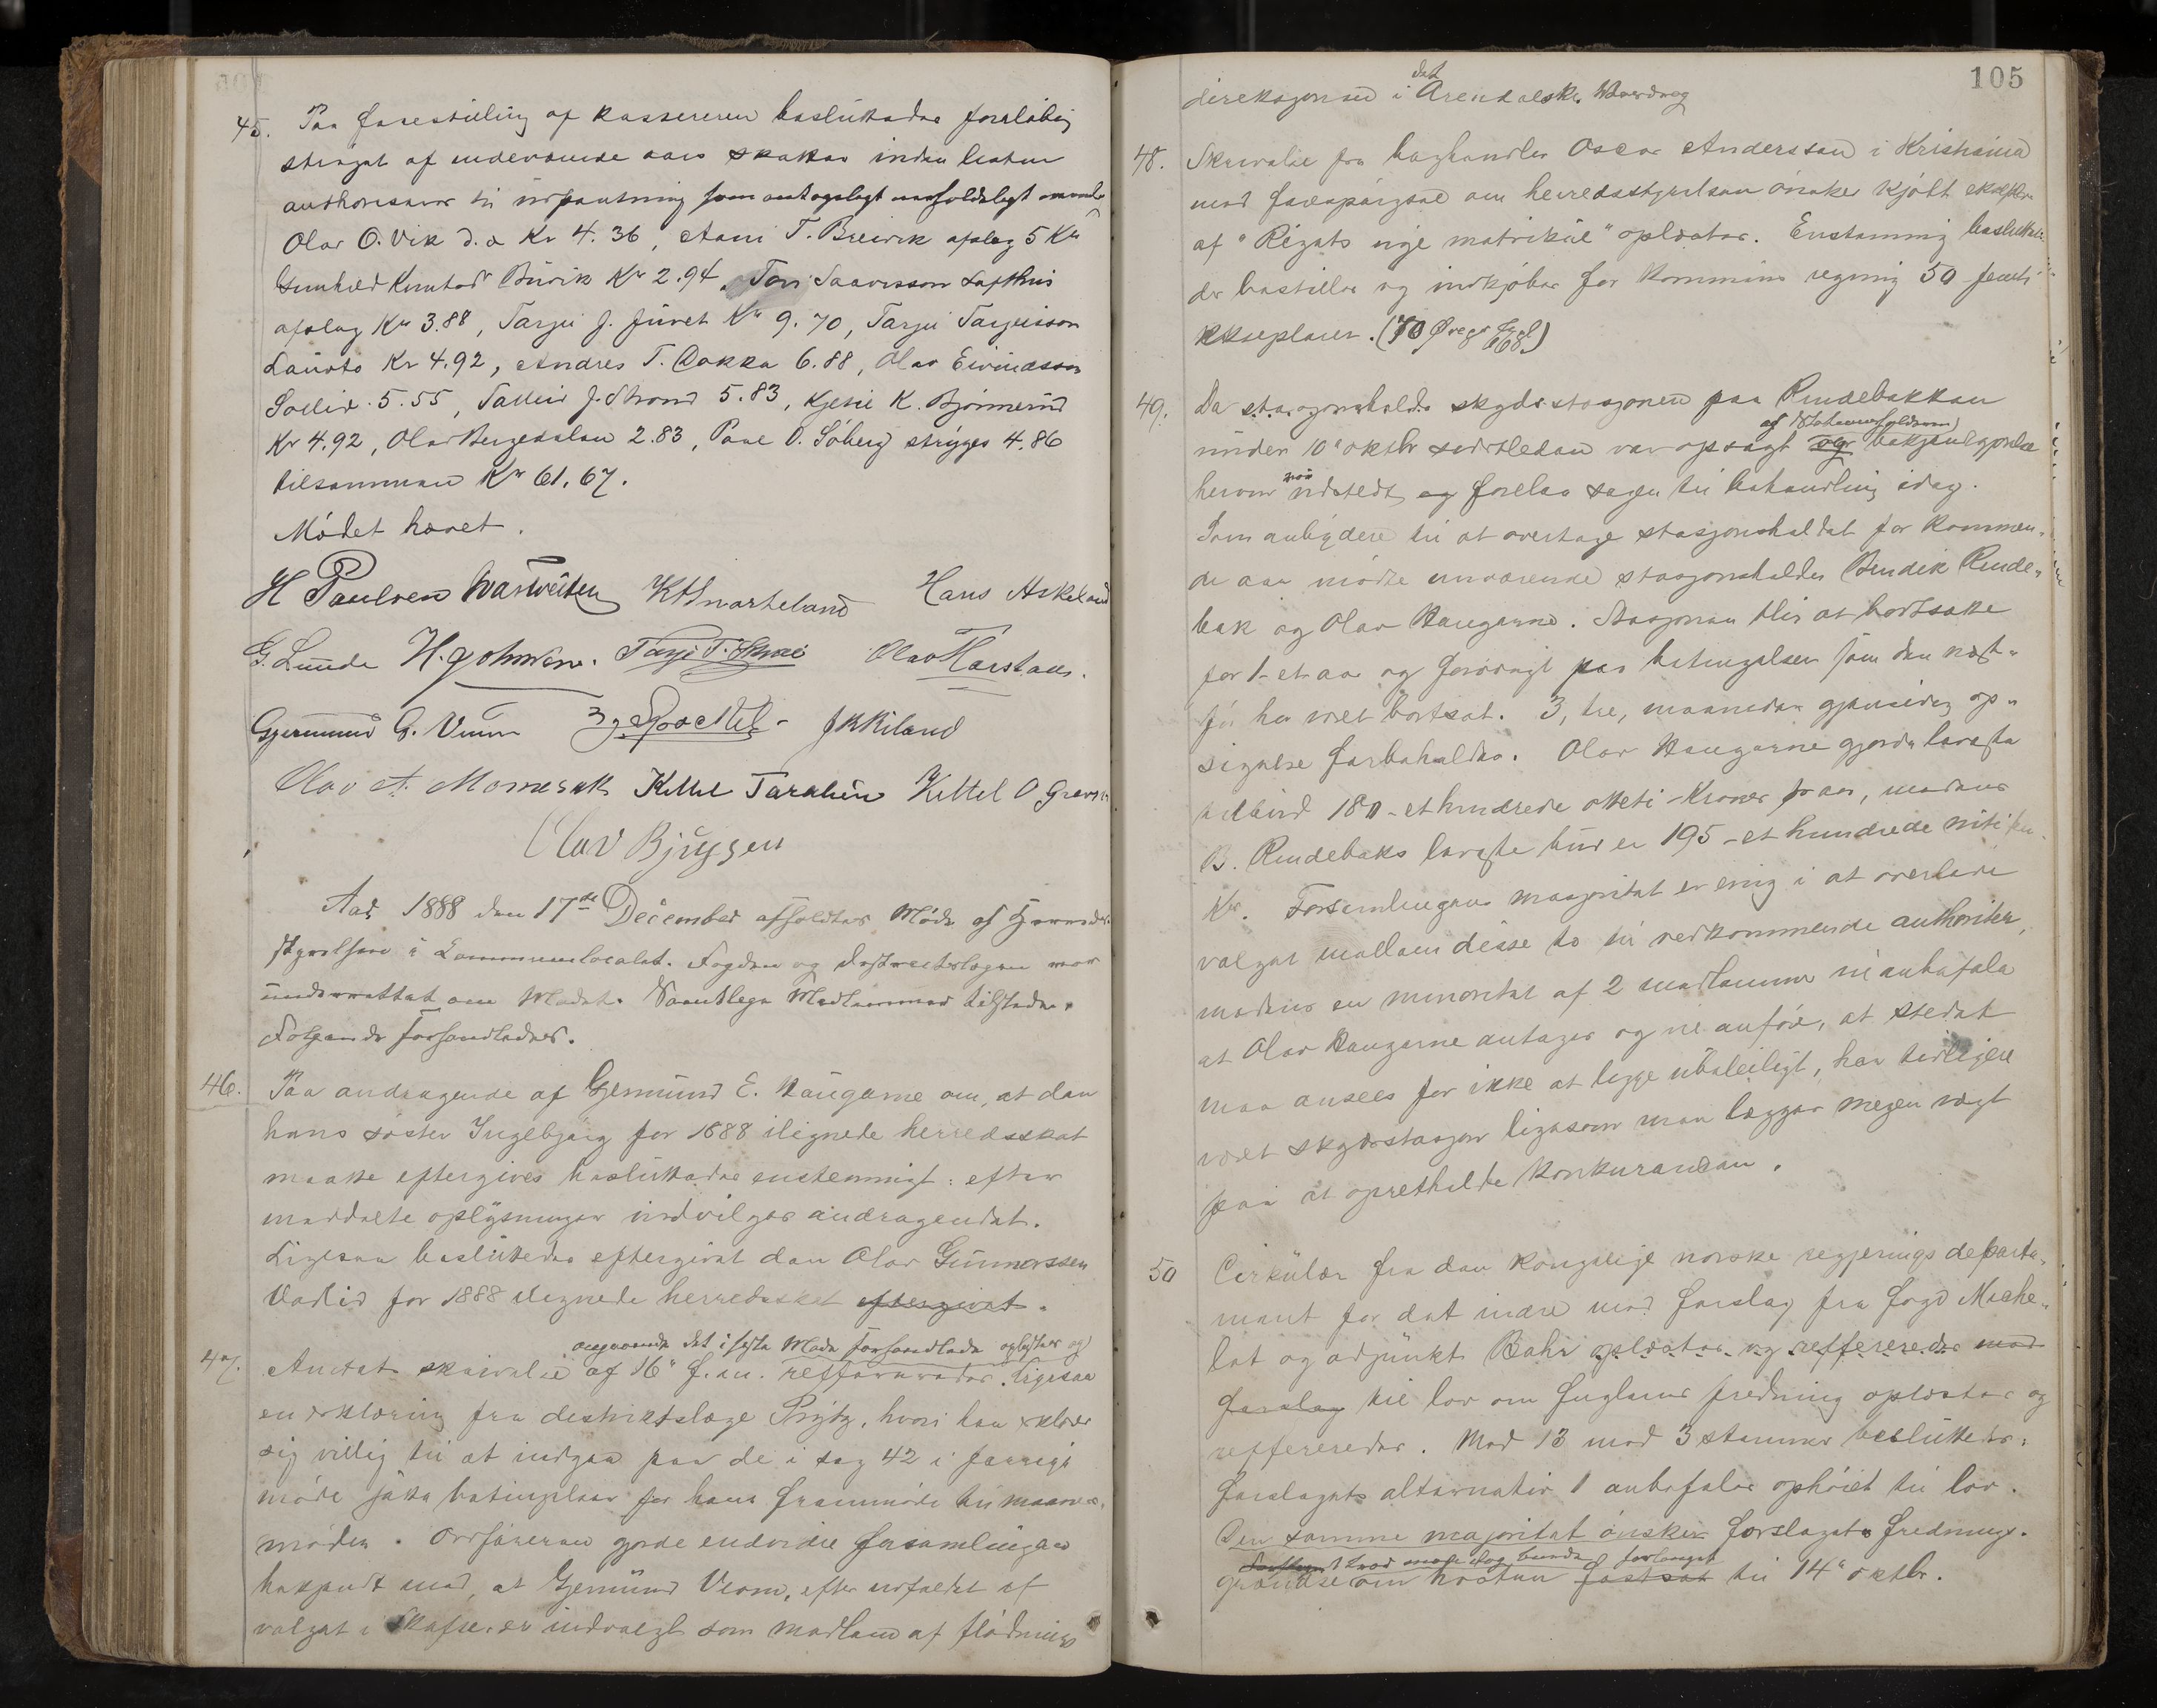 45. Paa forestilling af kassereren besluttedes foreløbig
strøget af indeværende aars skatter inden listen
authoriseres til udpantning som
Olav O. Vik d.æ Kr 4.36, Aani T. Breivik afslag 5 Kr
Gunhild Bûvik Kr 2.94, Tov Saavesson Lofthus
afslag Kr 3.88, Tarjei J. Jûvet Kr 9.70, Tarjei Tarjeisson
Lauvto Kr 4.92, Andres T. Dokka 6.88, Olav Eivindsson
Sollid 5.55, Talleiv J. Strond 5.83, Kjetil K. Bjønnerud
Kr 4.92, Olav Bergedalen 2.83, Paul O. Søberg strÿges 4.86
tilsammen Kr 61.67.
Mødet hævet.
H Paulsen KHSnarteland Hans Askeland
G. Lunde H. Johnsen. Tarje T. Olav Harstaul.
Gjermund G. Veum JKKiland
Olav A. Momrak Kittil Taraldlien Kittel O Graver
Olav Bjaaen
Aar 1888 den 17de December afholdtes Møde af Herreds-
styrelsen i Kommunelocalet. Fogden og Distrectslægen var
underrettet om Mødet. Samtlege Medlemmer tilstede.
Følgende forhandledes.
46. Paa andragende af Gjermund E. Haugarne om, at den
hans søster Ingebjørg for 1888 ilignede herredsskat
maatte eftergives besluttedes enstemmigt: efter
meddelte oplÿsninger indvilges andragendet.
Ligesaa besluttedes eftergivet den Olav Gunnarssen
Vadlid for 1888 ilegnede herredsskat eftergivet.
angaaende det i sidste Møde forhandlede oplæstes og
47. Amtets skrivelse af 16' f.m. reffereredes. Ligesaa
en erklæring fra destriktslæge Prÿtz, hvori han erklærer
sig villig til at indgaa paa de i sag 42 i forrige
møde satte betingelser for hans fremmøde til maaneds-
møder. Ordføreren gjorde endvidre forsamlingen
bekjendt med, at Gjermund Veum, efter udfaldet af
valget i Skafse, er indvalgt som medlem af flødnings
105
direksjonen i det Arendalske Vasdrag
48. Skrivelse fra boghandler Oscar Anderssen i Kristiania
med forespørgsel om herredsstyrelsen ønsker kjøbt eksempl.
af "Rigets nye matrikul" oplæstes. Enstemmig besluttedes
der bestilles og indkjøbes for kommunens regning 50 femti
eksemplarer. (70 Øre pr Expl)
49. Da stasjonsholder skydsstasjonen paa Rundebakken
af Stasionsholderen
under 10' oktbr sidstleden var opsagt og bekjendtgjørelse
herom var udstedt, og forelaa sagen til behandling idag.
Som anbydere til at overtage stasjonsholdet for kommen-
de aar mødte nuværende stasjonsholder Bendik Runde-
bak og Olav Haugarne. Stasjonen blir at bortsætte
for 1 - et aar og forøvrigt paa betingelser som den nest-
før har vært bortsat. 3, tre, maaneders gjensidig op-
sigelse forbeholdes. Olav Haugarne gjorde laveste
tilbud 180 - et hundrede otteti - Kroner pr aar, medens
B. Rundebaks laveste bud er 195 - et hundrede niti fem
Kr. Forsamlingens majoritet er enig i at overlade
valget mellem disse to til vedkommende authoriteter,
medens en minoritet af 2 medlemmer vil anbefale
at Olav Haugarne antages og vil anføre, at stedet
maa ansees for ikke at ligge ubeleiligt, har tidligere
vært skydsstasjon ligesom man lægger megen vægt
paa at opretholde konkurransen.
50 Cirkulær fra den kongelige norske regjerings departe-
ment for det indre med forslag fra fogd Mache-
lot og adjunkt Bahr oplæstes og reffereredes med
forslag til lov om fuglenes fredning oplæstes og
reffereredes. Med 13 mod 3 stemmer besluttedes:
forslagets alternativ 1 anbefales ophøiet til lov.
Den samme majoritet ønsker forslagets frednings-
grændse om høsten fastsat forlænget til 14' oktbr.